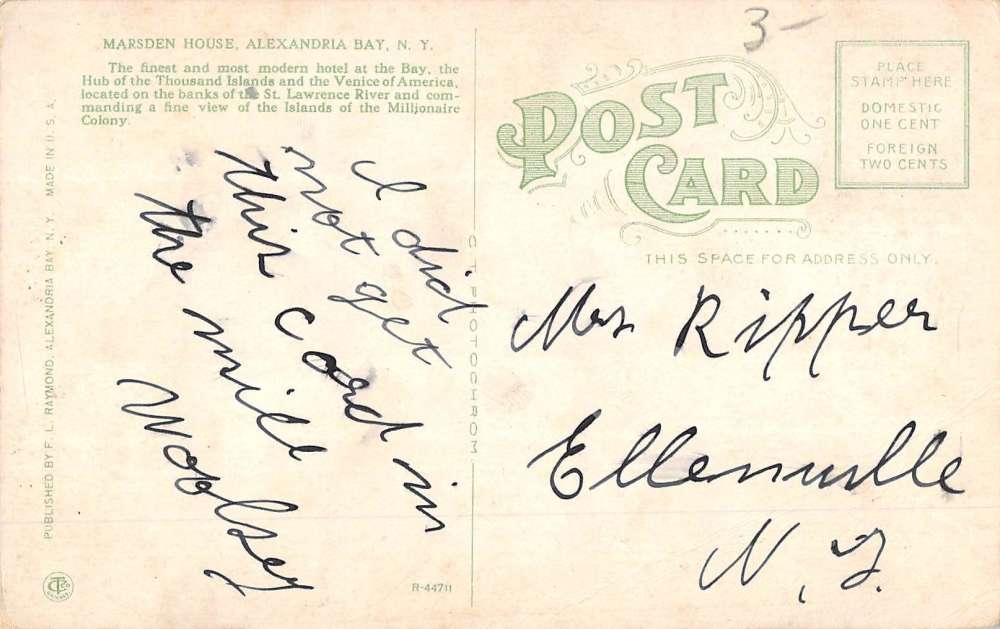 3-
MARSDEN HOUSE, ALEXANDRIA BAY, N. Y.
The finest and most modern hotel at the Bay, the
Hub of the Thousand Islands and the Venice of America,
located on the banks of the St. Lawrence River and com-
manding a fine view of the Islands of the Millionaire
Colony.
I did
not get
this card in
the mill
Woolsey
PUBLISHED BY F. L. RAYMOND, ALEXANDRIA BAY, N. Y. MADE IN U. S. A.
C T PHOTOCHROM
R-44711
POST
CARD
PLACE
STAMP HERE
DOMESTIC
ONE CENT
FOREIGN
TWO CENTS
THIS SPACE FOR ADDRESS ONLY.
Mrs Ripper
Ellenville
N. Y.